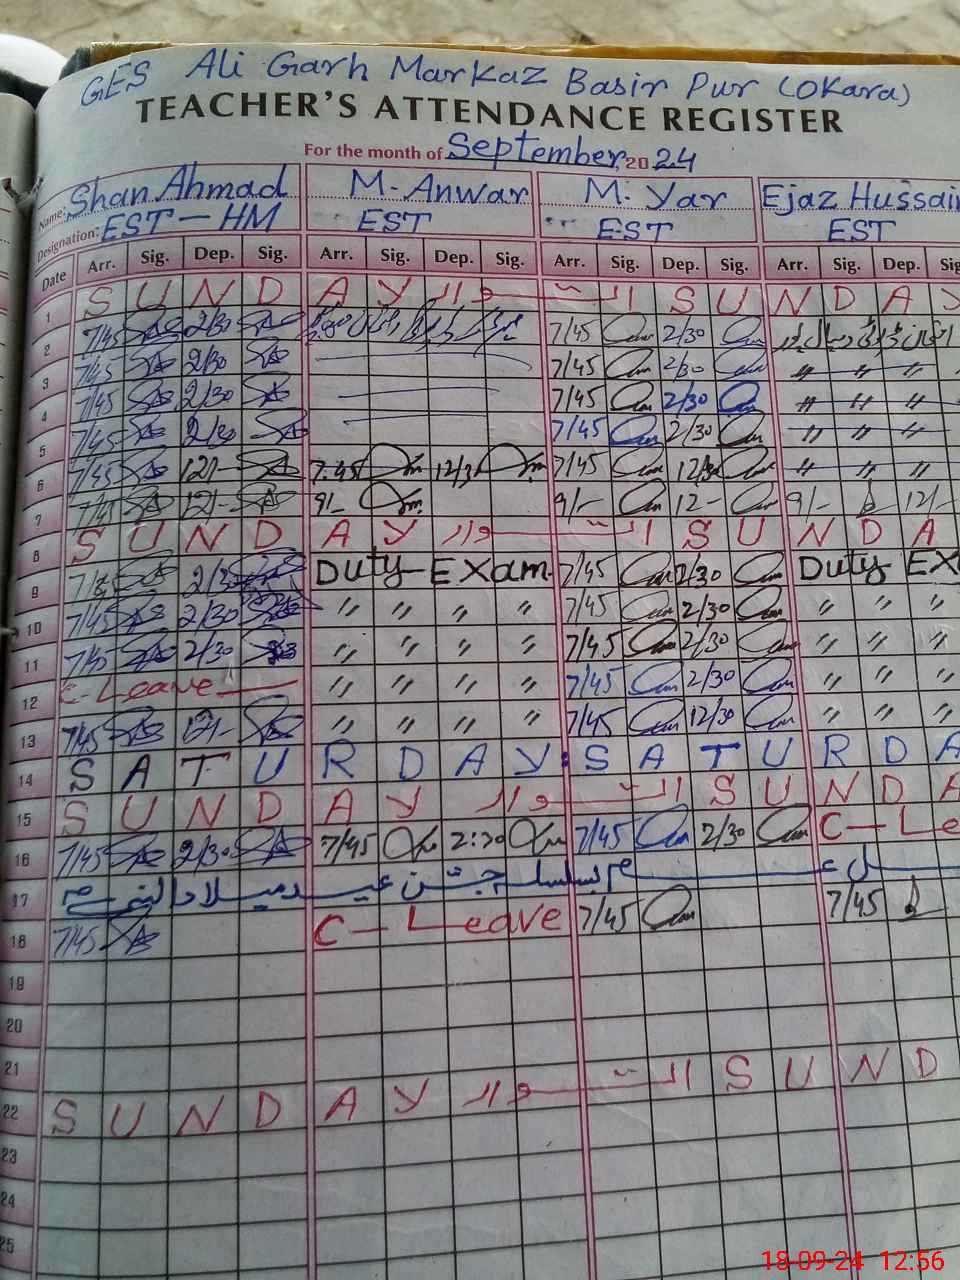 GES Ali Garh Markaz Basir Pur (Okara)
TEACHER'S ATTENDANCE REGISTER
For the month of September, 2024
Name: Shan Ahmad M. Anwar M. Yar Ejaz Hussain
Designation: EST - HM EST EST EST
Date Arr. Sig. Dep. Sig. Arr. Sig. Dep. Sig. Arr. Sig. Dep. Sig. Arr. Sig. Dep. Sig
1 S U N D A Y اتوار S U N D A Y
2 7/45 2/30 7/45 2/30
3 7/45 2/30 7/45 2/30 " " "
4 7/45 2/30 7/45 2/30 " " "
5 7/45 2/30 7/45 2/30 " " "
6 7/45 12/- 7.45 12/30 7/45 12/30 " " "
7 7/45 12/- 9/- 9/- 12- 9/- 12/-
8 S U N D A Y اتوار S U N D A
9 7/45 2/30 Duty Exam 7/45 2/30 Duty Ex
10 7/45 2/30 " " " " 7/45 2/30 " " "
11 7/45 2/30 " " " " 7/45 2/30 " " "
12 C-Leave " " " " 7/45 2/30 " " "
13 7/45 12/- " " " " 7/45 12/30 " " "
14 S A T U R D A Y : S A T U R D A
15 S U N D A Y اتوار S U N D A
16 7/45 2/30 7/45 2:30 7/45 2/30 C-Le
17 بسلسلہ جشن عید میلاد النبی
18 7/45 C-Leave 7/45 7/45
19
20
21
22 S U N D A Y اتوار S U N D
23
24
25
18-09-24 12:56